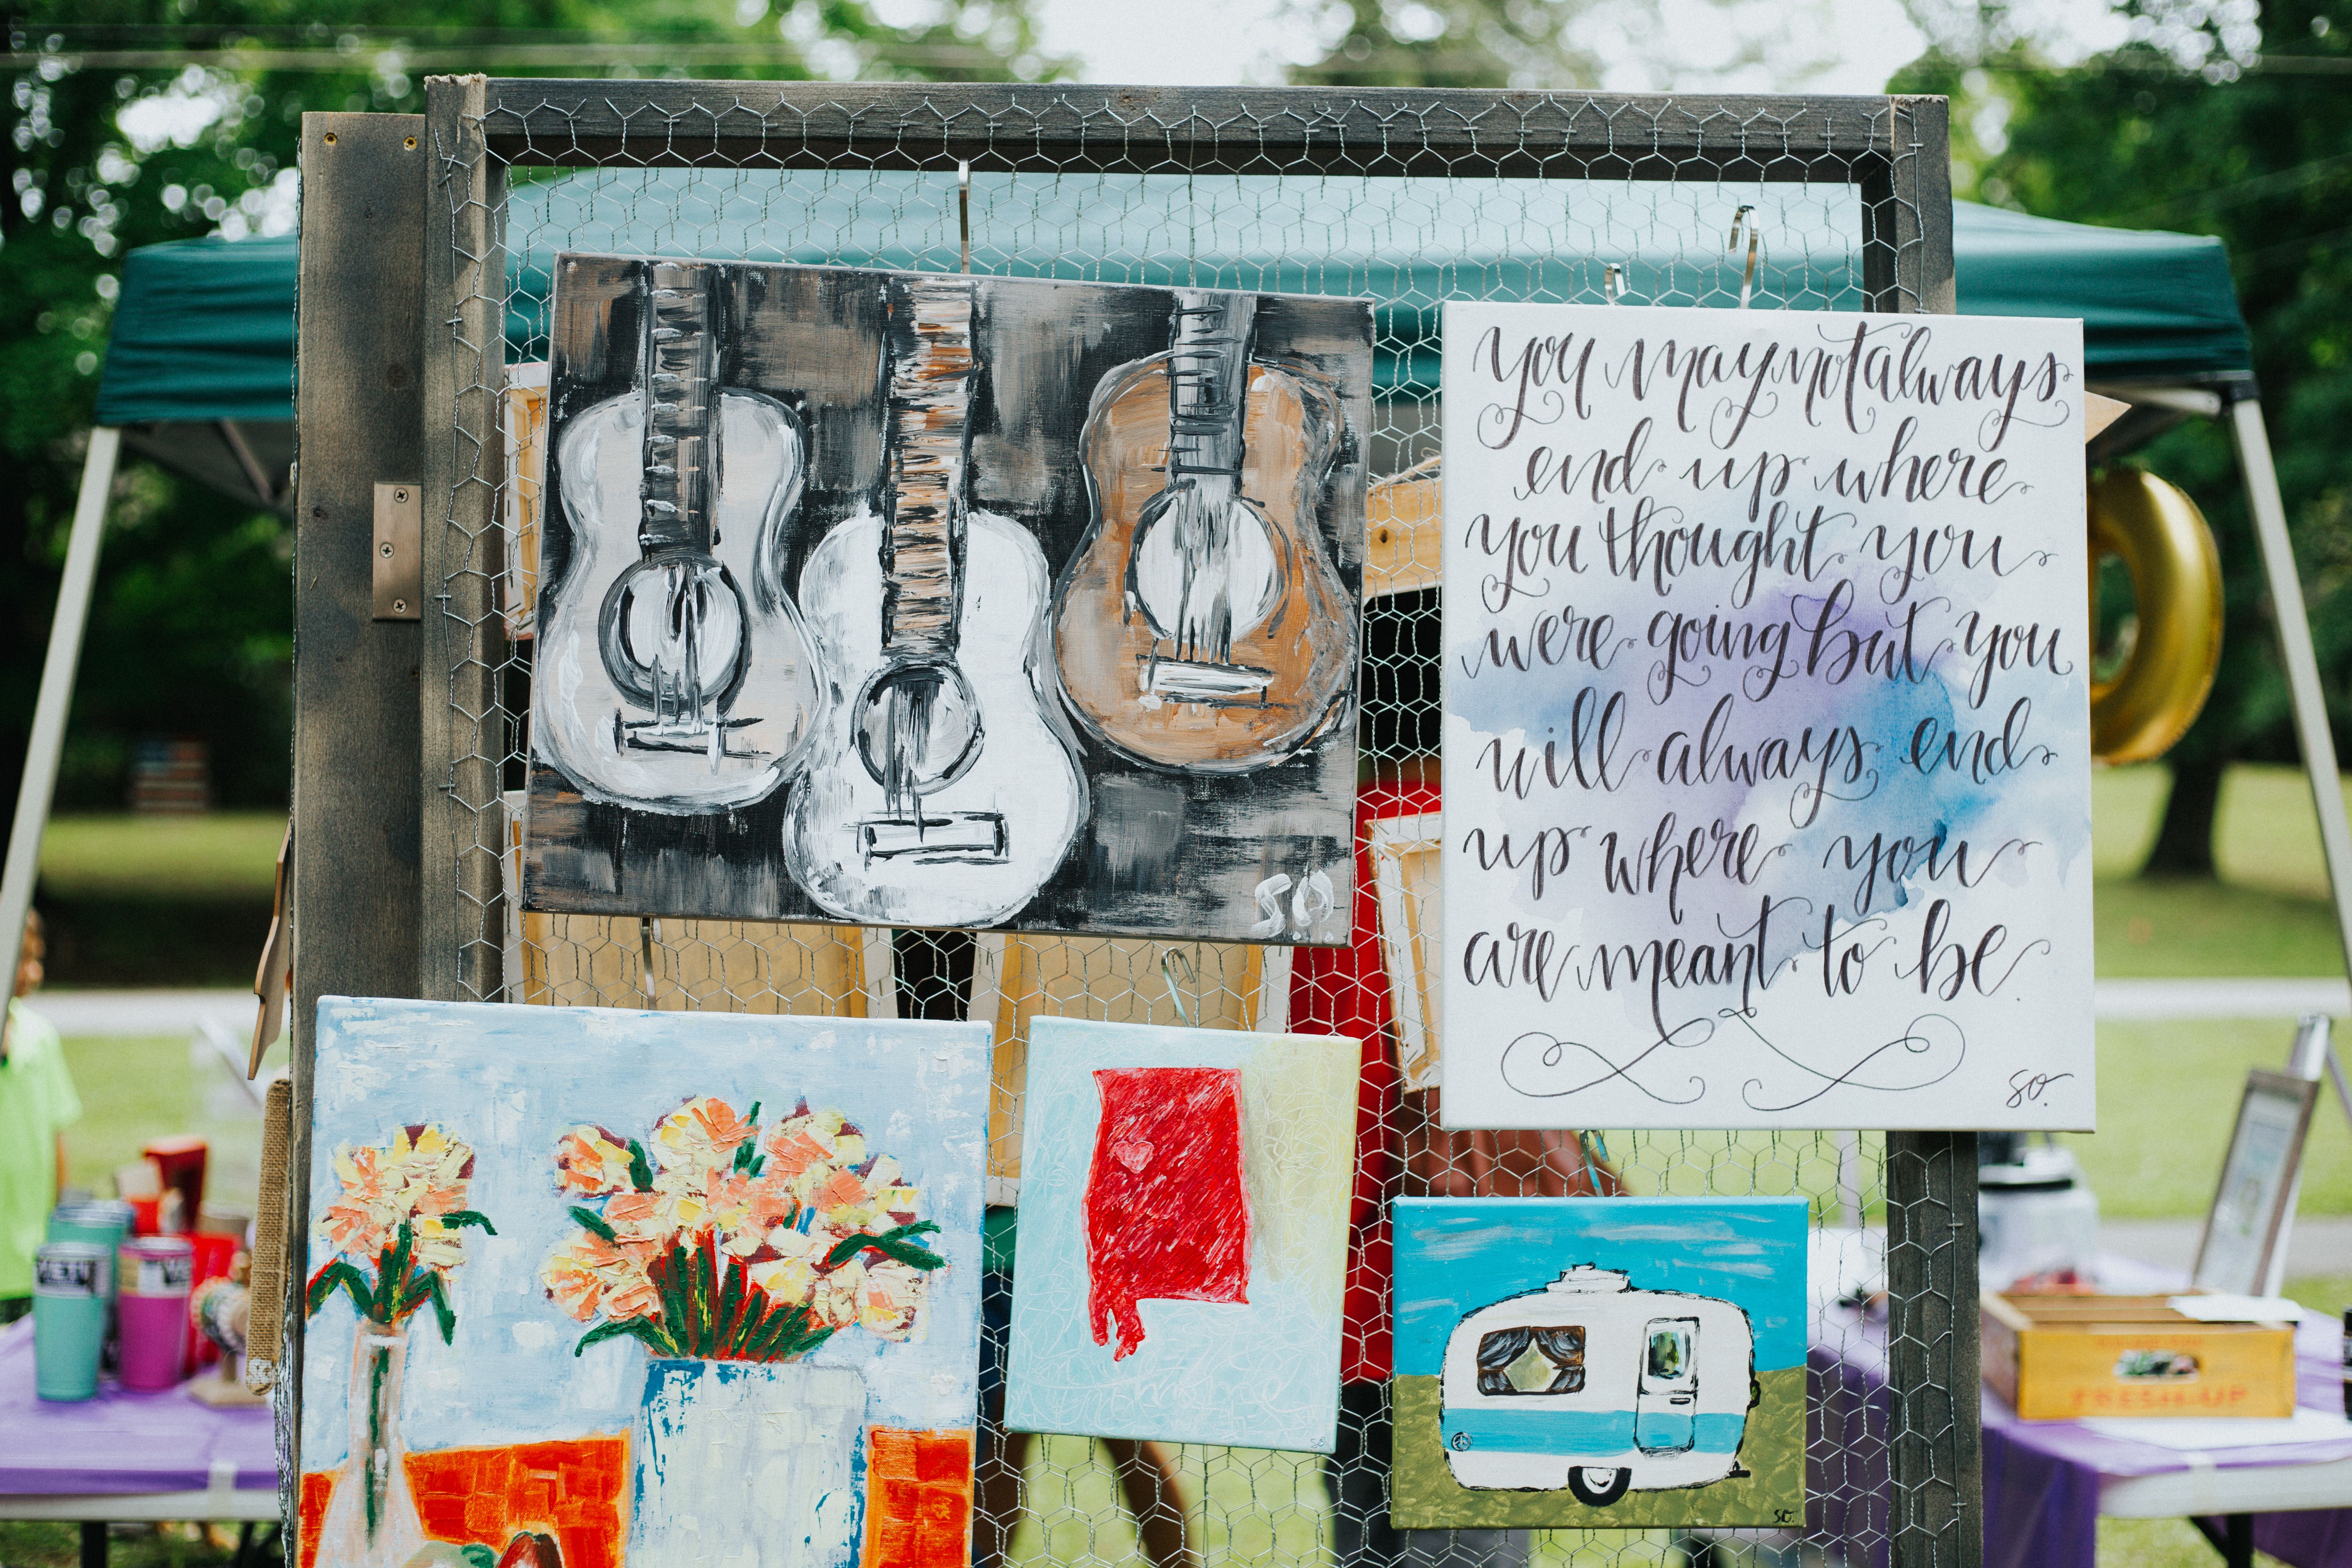 you may not always
end up where
you thought you
were going but you
will always end
up where you
are meant to be.
SO.
S.O.
home
SO
SO.
YETI
FRESH-UP